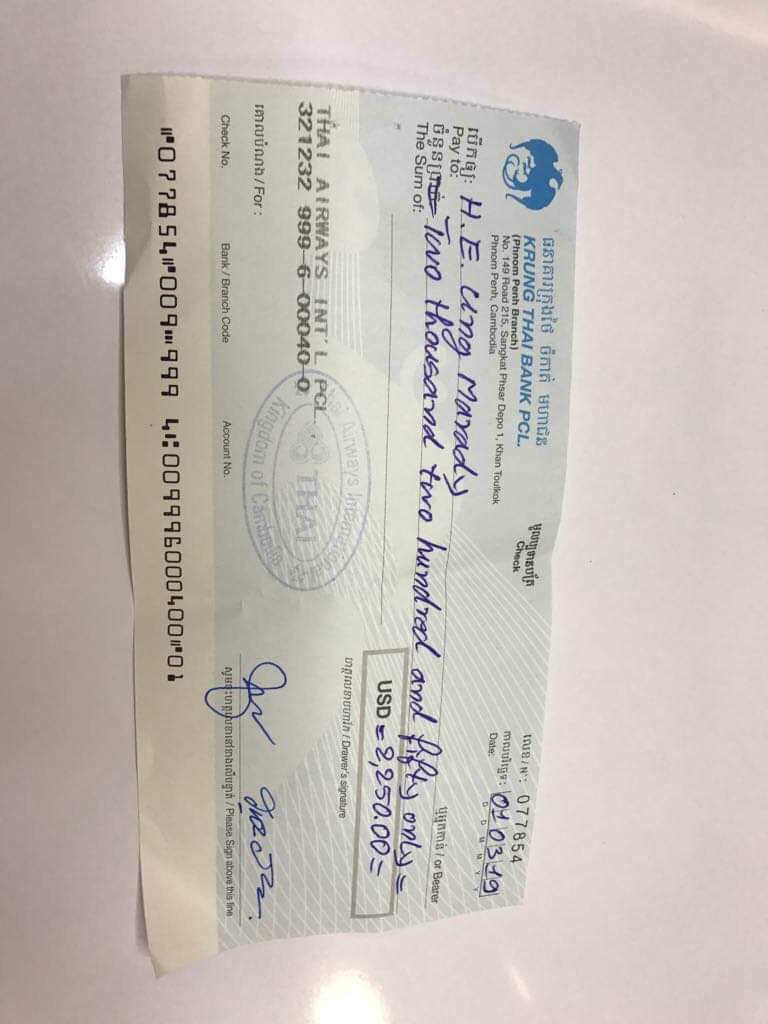 ធនាគារក្រុងថៃ ចំកាត់ មហាជន
KRUNG THAI BANK PCL.
(Phnom Penh Branch)
No. 149 Road 215, Sangkat Phsar Depo 1, Khan Toulkok
Phnom Penh, Cambodia
មូលប្បទានបត្រ
Check
លេខ / N°: 077854
កាលបរិច្ឆេទ:
Date: 010319
D D M M Y Y
បើកឲ្យ:
Pay to: H.E. Ung Marady
ឬអ្នកកាន់ / or Bearer
ចំនួនប្រាក់
The Sum of: = Two thousand two hundred and fifty only =
USD = 2,250.00 =
THAI AIRWAYS INT'L PCL.
321232 999-6-00040-0
Thai Airways International
THAI
Kingdom of Cambodia
ហត្ថលេខាម្ចាស់ / Drawer's signature
គោលបំណង / For :
សូមចុះហត្ថលេខានៅខាងលើបន្ទាត់ / Please Sign above this line
Check No. Bank / Branch Code Account No.
⑈077854⑈009⑉999 4⑆0099960004 00⑈01